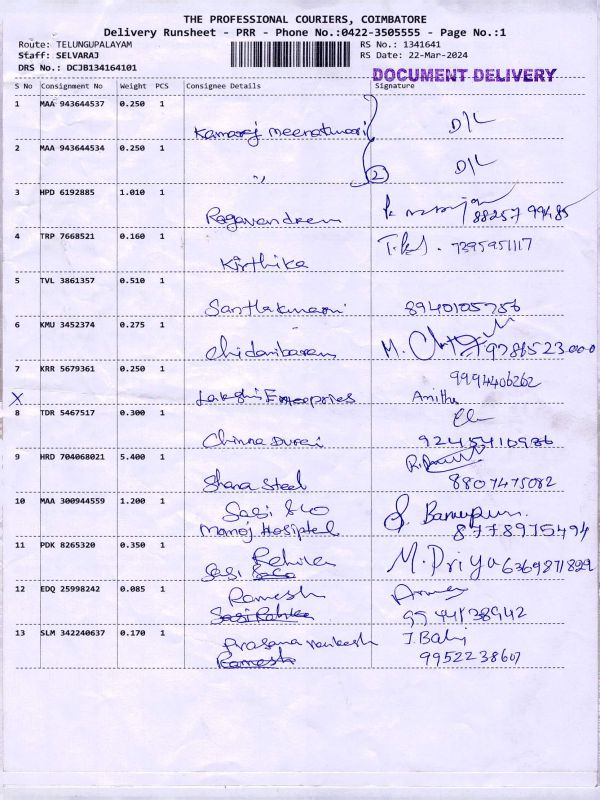 THE PROFESSIONAL COURIERS, COIMBATORE
Delivery Runsheet - PRR - Phone No.:0422-3505555 - Page No.:1
Route: TELUNGUPALAYAM RS No.: 1341641
Staff: SELVARAJ RS Date: 22-Mar-2024
DRS No.: DCJB134164101
DOCUMENT DELIVERY
S No Consignment No Weight PCS Consignee Details Signature
1 MAA 943644537 0.250 1
Kamaraj D/L
2 MAA 943644534 0.250 1
" 2 D/L
3 HPD 6192885 1.010 1
Ragavendren 88257 99485
4 TRP 7668521 0.160 1
Kirthika 7395951117
5 TVL 3861357 0.510 1
8940105756
6 KMU 3452374 0.275 1
Chidambaram M. 9786523000
7 KRR 5679361 0.250 1 9994406262
X Lakshi Enterprises Amitha
8 TDR 5467517 0.300 1
Chinna Durai 9245410986
9 HRD 704068021 5.400 1
Shana Steel 8807475082
10 MAA 300944559 1.200 1 Sasi & Co
Manoj Hosiptel 8778975494
11 PDK 8265320 0.350 1 M. Priya 6369871829
Sasi & Co
12 EDQ 25998242 0.085 1 Ramesh
9944138942
13 SLM 342240637 0.170 1 Prasana venkesh J. Balaji
Ramesh 9952238607